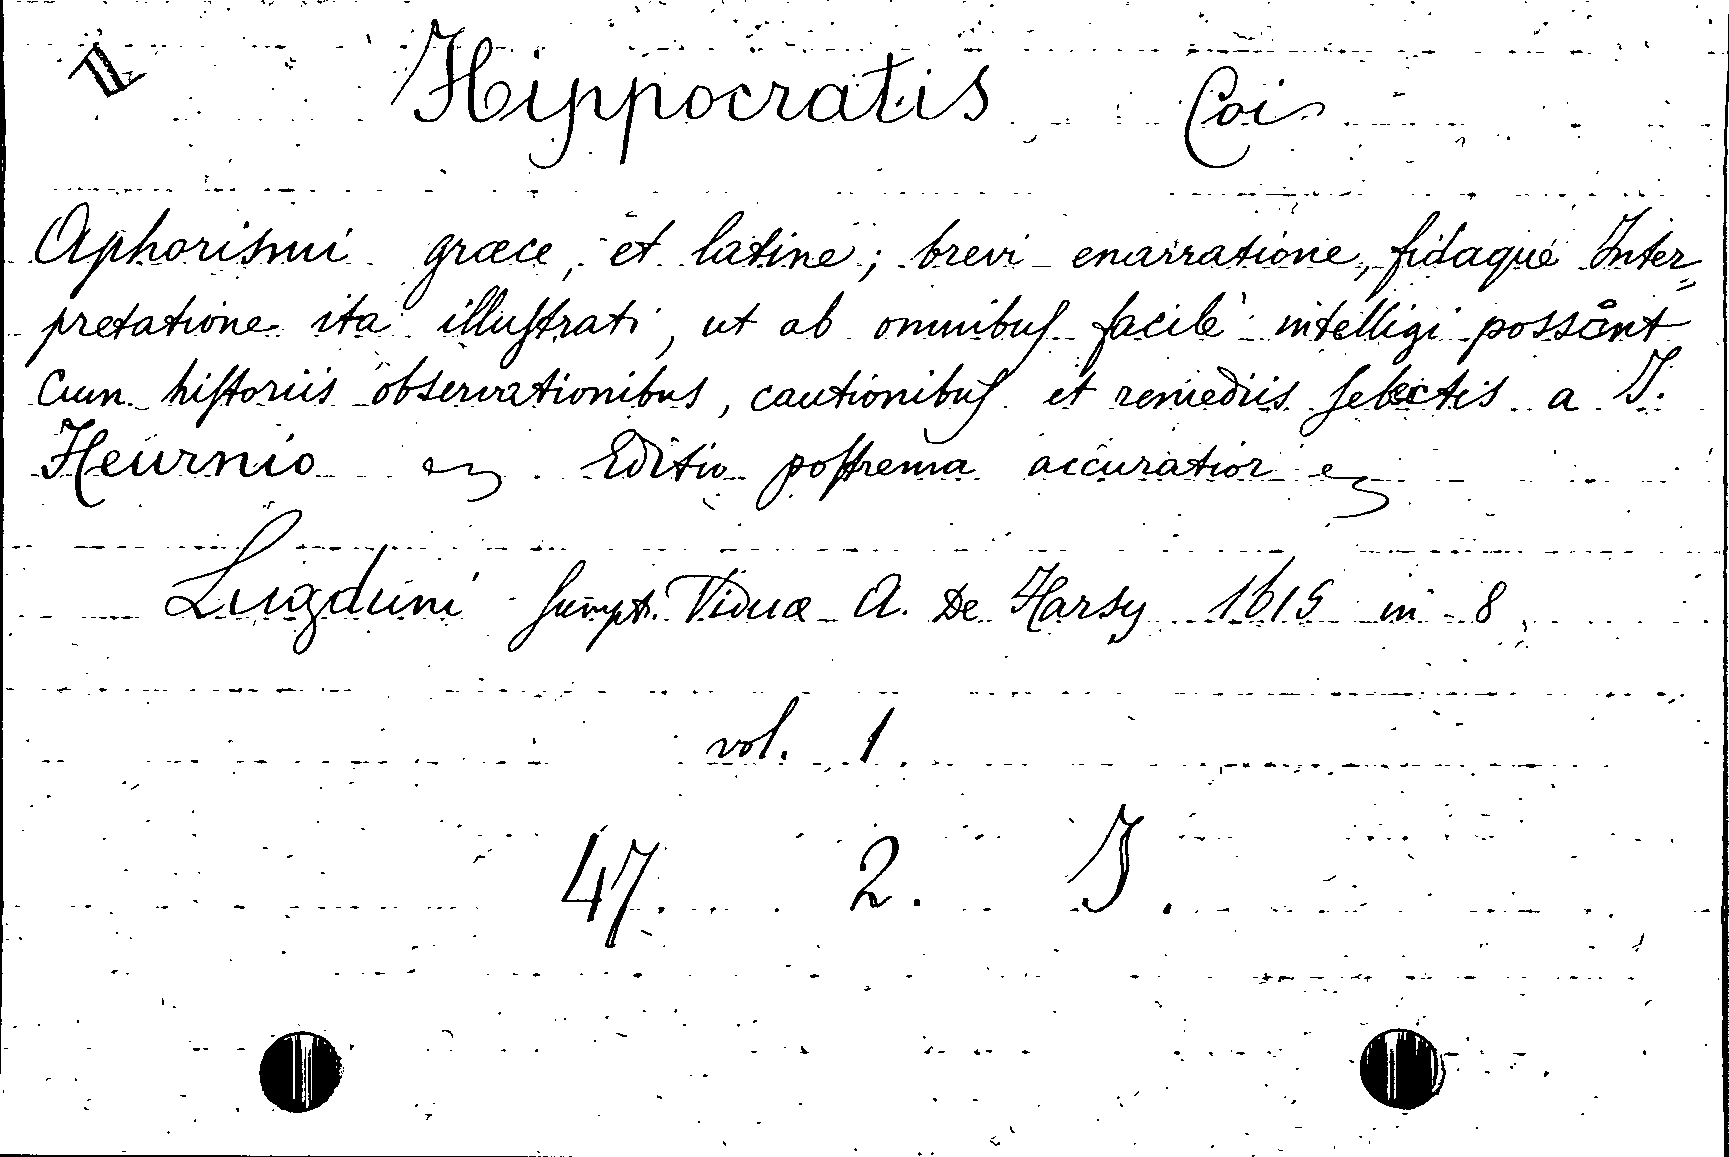 II
Hippocratis Coi
Aphorismi græce, et latine; brevi enarratione, fidaque Inter=
pretatione ita illuſtrati, ut ab omnibuſ facilè intelligi possint
Cum hiſtoriis observationibus, cautionibuſ et remediis ſelectis a J.
Heurnio Editio poſtrema accuratior
Lugduni ſumpt. Viduæ A. De Harsy 1615 in 8
vol. 1.
47. 2. J.